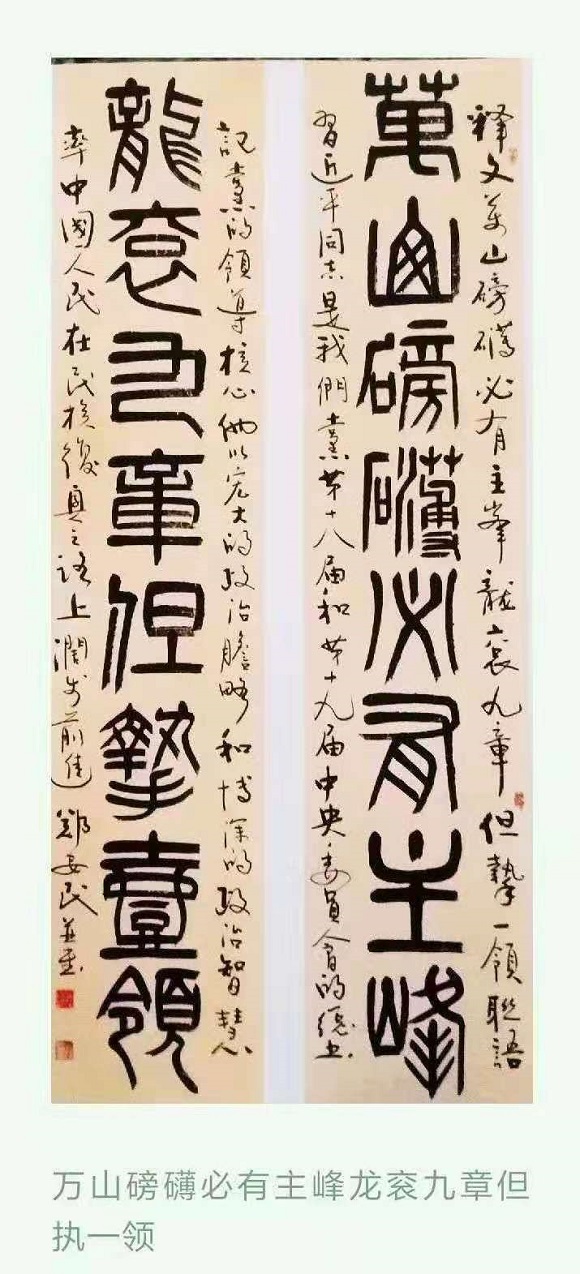 释文萬山磅礴必有主峯龍衮九章但摯一領聯語
萬山磅礴必有主峰
習近平同志是我們黨第十八届和第十九届中央委員會的總书
記黨的領導核心他以宏大的政治膽略和博深的政治智慧
龍衮九章但摯壹領
率中國人民在民族復興之路上濶步前進鄭安民並書
万山磅礴必有主峰龙衮九章但
执一领